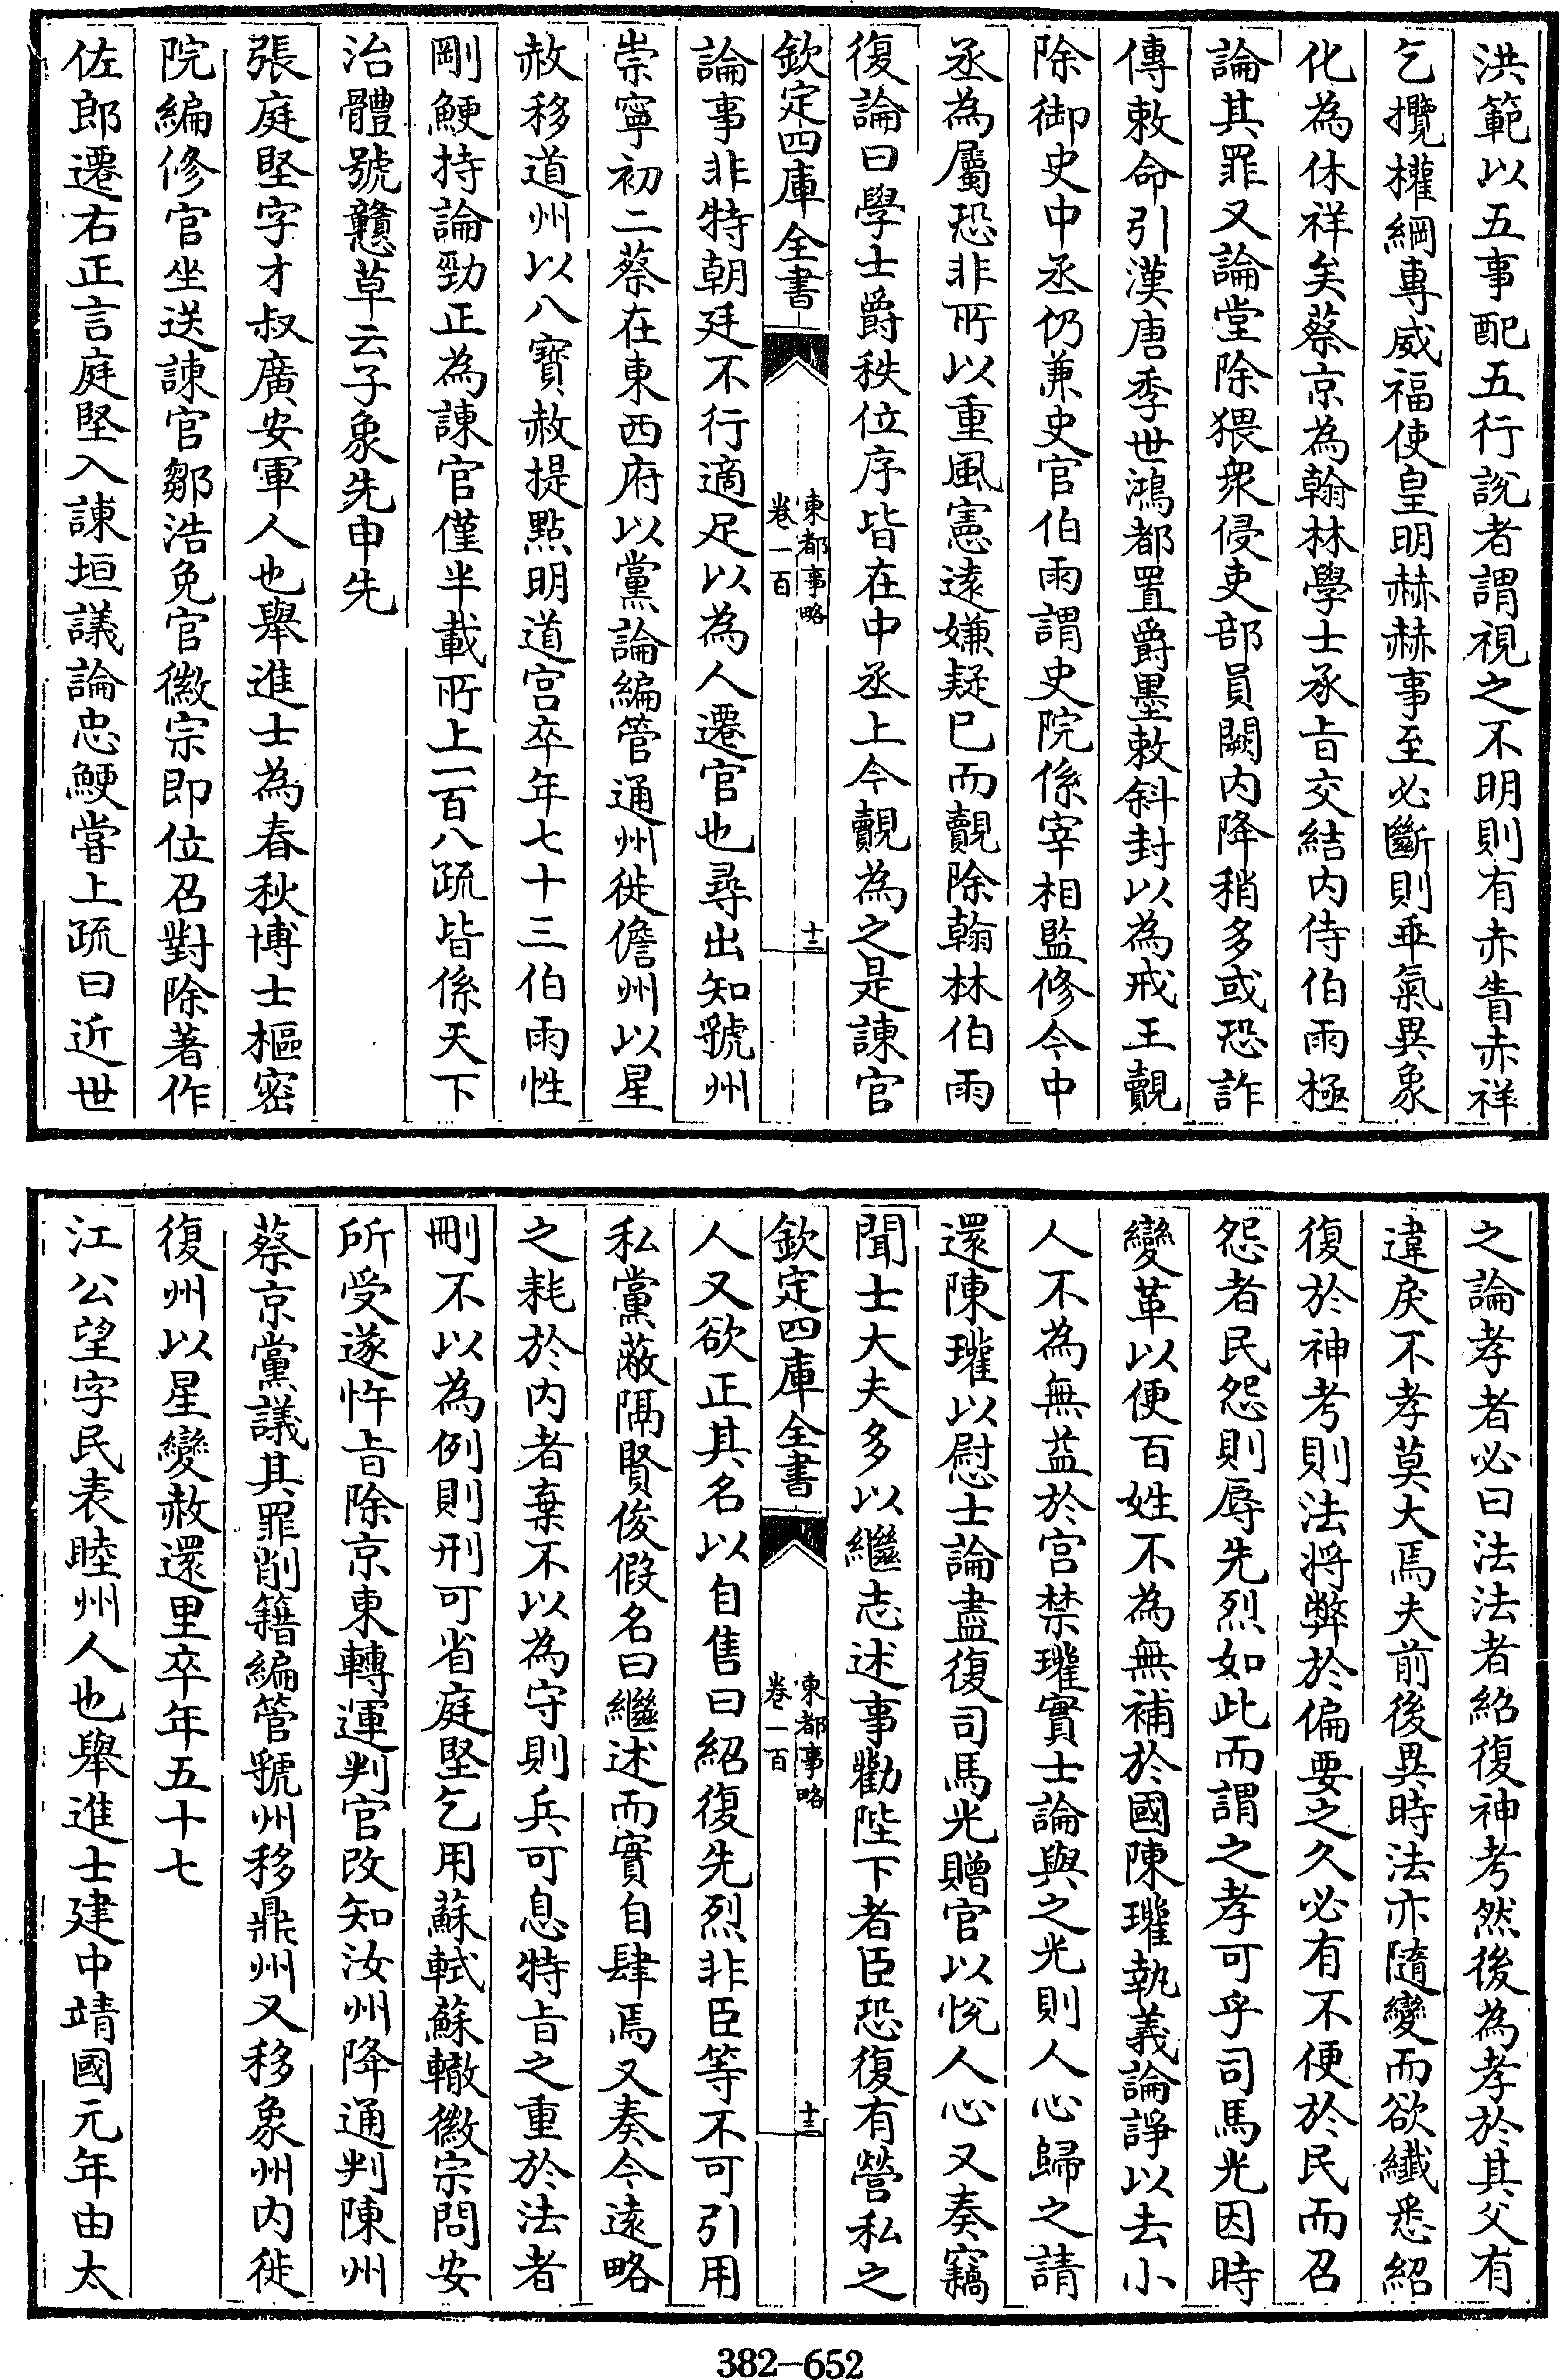 洪範以五事配五行說者謂視之不明則有赤眚赤祥
乞攬權綱專威福使皇明赫赫事至必斷則乖氣異象
化為休祥矣蔡京為翰林學士承旨交結內侍伯雨極
論其罪又論堂除猥衆侵吏部員闕內降稍多或恐詐
傳敕命引漢唐季世鴻都置爵墨敕斜封以為戒王覿
除御史中丞仍兼史官伯雨謂史院係宰相監修今中
丞為屬恐非所以重風憲遠嫌疑已而覿除翰林伯雨
復論曰學士爵秩位序皆在中丞上今覿為之是諫官
欽定四庫全書
東都事略
卷一百
十二
論事非特朝廷不行適足以為人遷官也尋出知虢州
崇寧初二蔡在東西府以黨論編管通州徙儋州以星
赦移道州以八寶赦提點明道宮卒年七十三伯雨性
剛鯁持論勁正為諫官僅半載所上一百八疏皆係天下
治體號戇草云子象先申先
張庭堅字才叔廣安軍人也舉進士為春秋博士樞密
院編修官坐送諫官鄒浩免官徽宗即位召對除著作
佐郎遷右正言庭堅入諫垣議論忠鯁嘗上疏曰近世
之論孝者必曰法法者紹復神考然後為孝於其父有
違戾不孝莫大焉夫前後異時法亦隨變而欲纖悉紹
復於神考則法將弊於偏要之久必有不便於民而召
怨者民怨則辱先烈如此而謂之孝可乎司馬光因時
變革以便百姓不為無補於國陳瓘執義論諍以去小
人不為無益於宮禁瓘實士論與之光則人心歸之請
還陳瓘以慰士論盡復司馬光贈官以悅人心又奏竊
聞士大夫多以繼志述事勸陛下者臣恐復有營私之
欽定四庫全書
東都事略
卷一百
十三
人又欲正其名以自售曰紹復先烈非臣等不可引用
私黨蔽隔賢俊假名曰繼述而實自肆焉又奏今遠略
之耗於內者棄不以為守則兵可息特旨之重於法者
刪不以為例則刑可省庭堅乞用蘇軾蘇轍徽宗問安
所受遂忤旨除京東轉運判官改知汝州降通判陳州
蔡京黨議其罪削籍編管虢州移鼎州又移象州內徙
復州以星變赦還里卒年五十七
江公望字民表睦州人也舉進士建中靖國元年由太
382—652